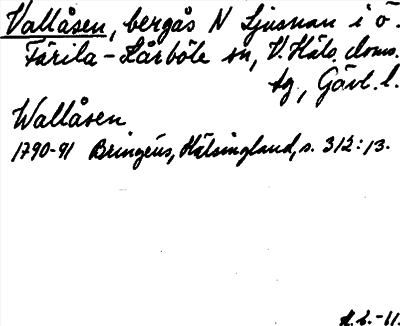 Vallåsen, bergås N Ljusnan i ö.
Färila-Kårböle sn, V. Häls. doms.
tg., Gävl. l.
Wallåsen
1790-91 Bringéus, Hälsingland, s. 312:13.
K.L.-11.